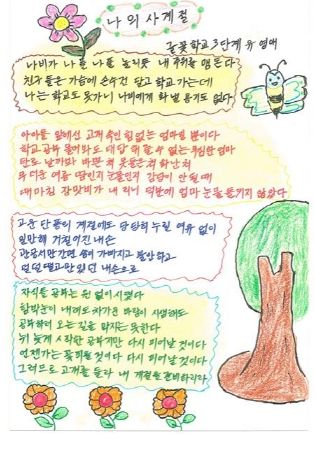 나의 사계절
늘푯학교 3단계 유영애
나비가 나를 나를 놀리듯 내 주위를 맴돈다
친구들은 가슴에 손수건 달고 학교 가는데
나는 학교도 못가니 나비에게 화낼 용기도 없다
아아들 앞에선 고개 숙인 힘없는 엄마일 뿐이다
학교 공부 물어봐도 대답해 줄 수 없는 무식한 엄마
만료 날까봐 바쁜척 못들은척 화난척
무더운 여름 땀인지 눈물인지 감당이 안될 때
때마침 장맛비가 내 려니 덕분에 엄마 눈물 들키지 않았다
고운 단풍의 계절에도 당당히 누릴 여유 없이
일만해 거칠어진 내손
관공서만 가면 숨이 가빠지고 불안하고
덜덜 떨고만 있던 내손으로
자식들 공부는 원 없이 시켰다
함박눈이 내려도 차가운 바람이 시샘해도
공부하러 오는 길을 막지는 못한다
뉘 늦게 시작한 공부지만 다시 피어날 것이다
언젠가는 꽃피울 것이다 다시 피어날 것이다
그러므로 고개를 들라 내 계절을 준비하리라